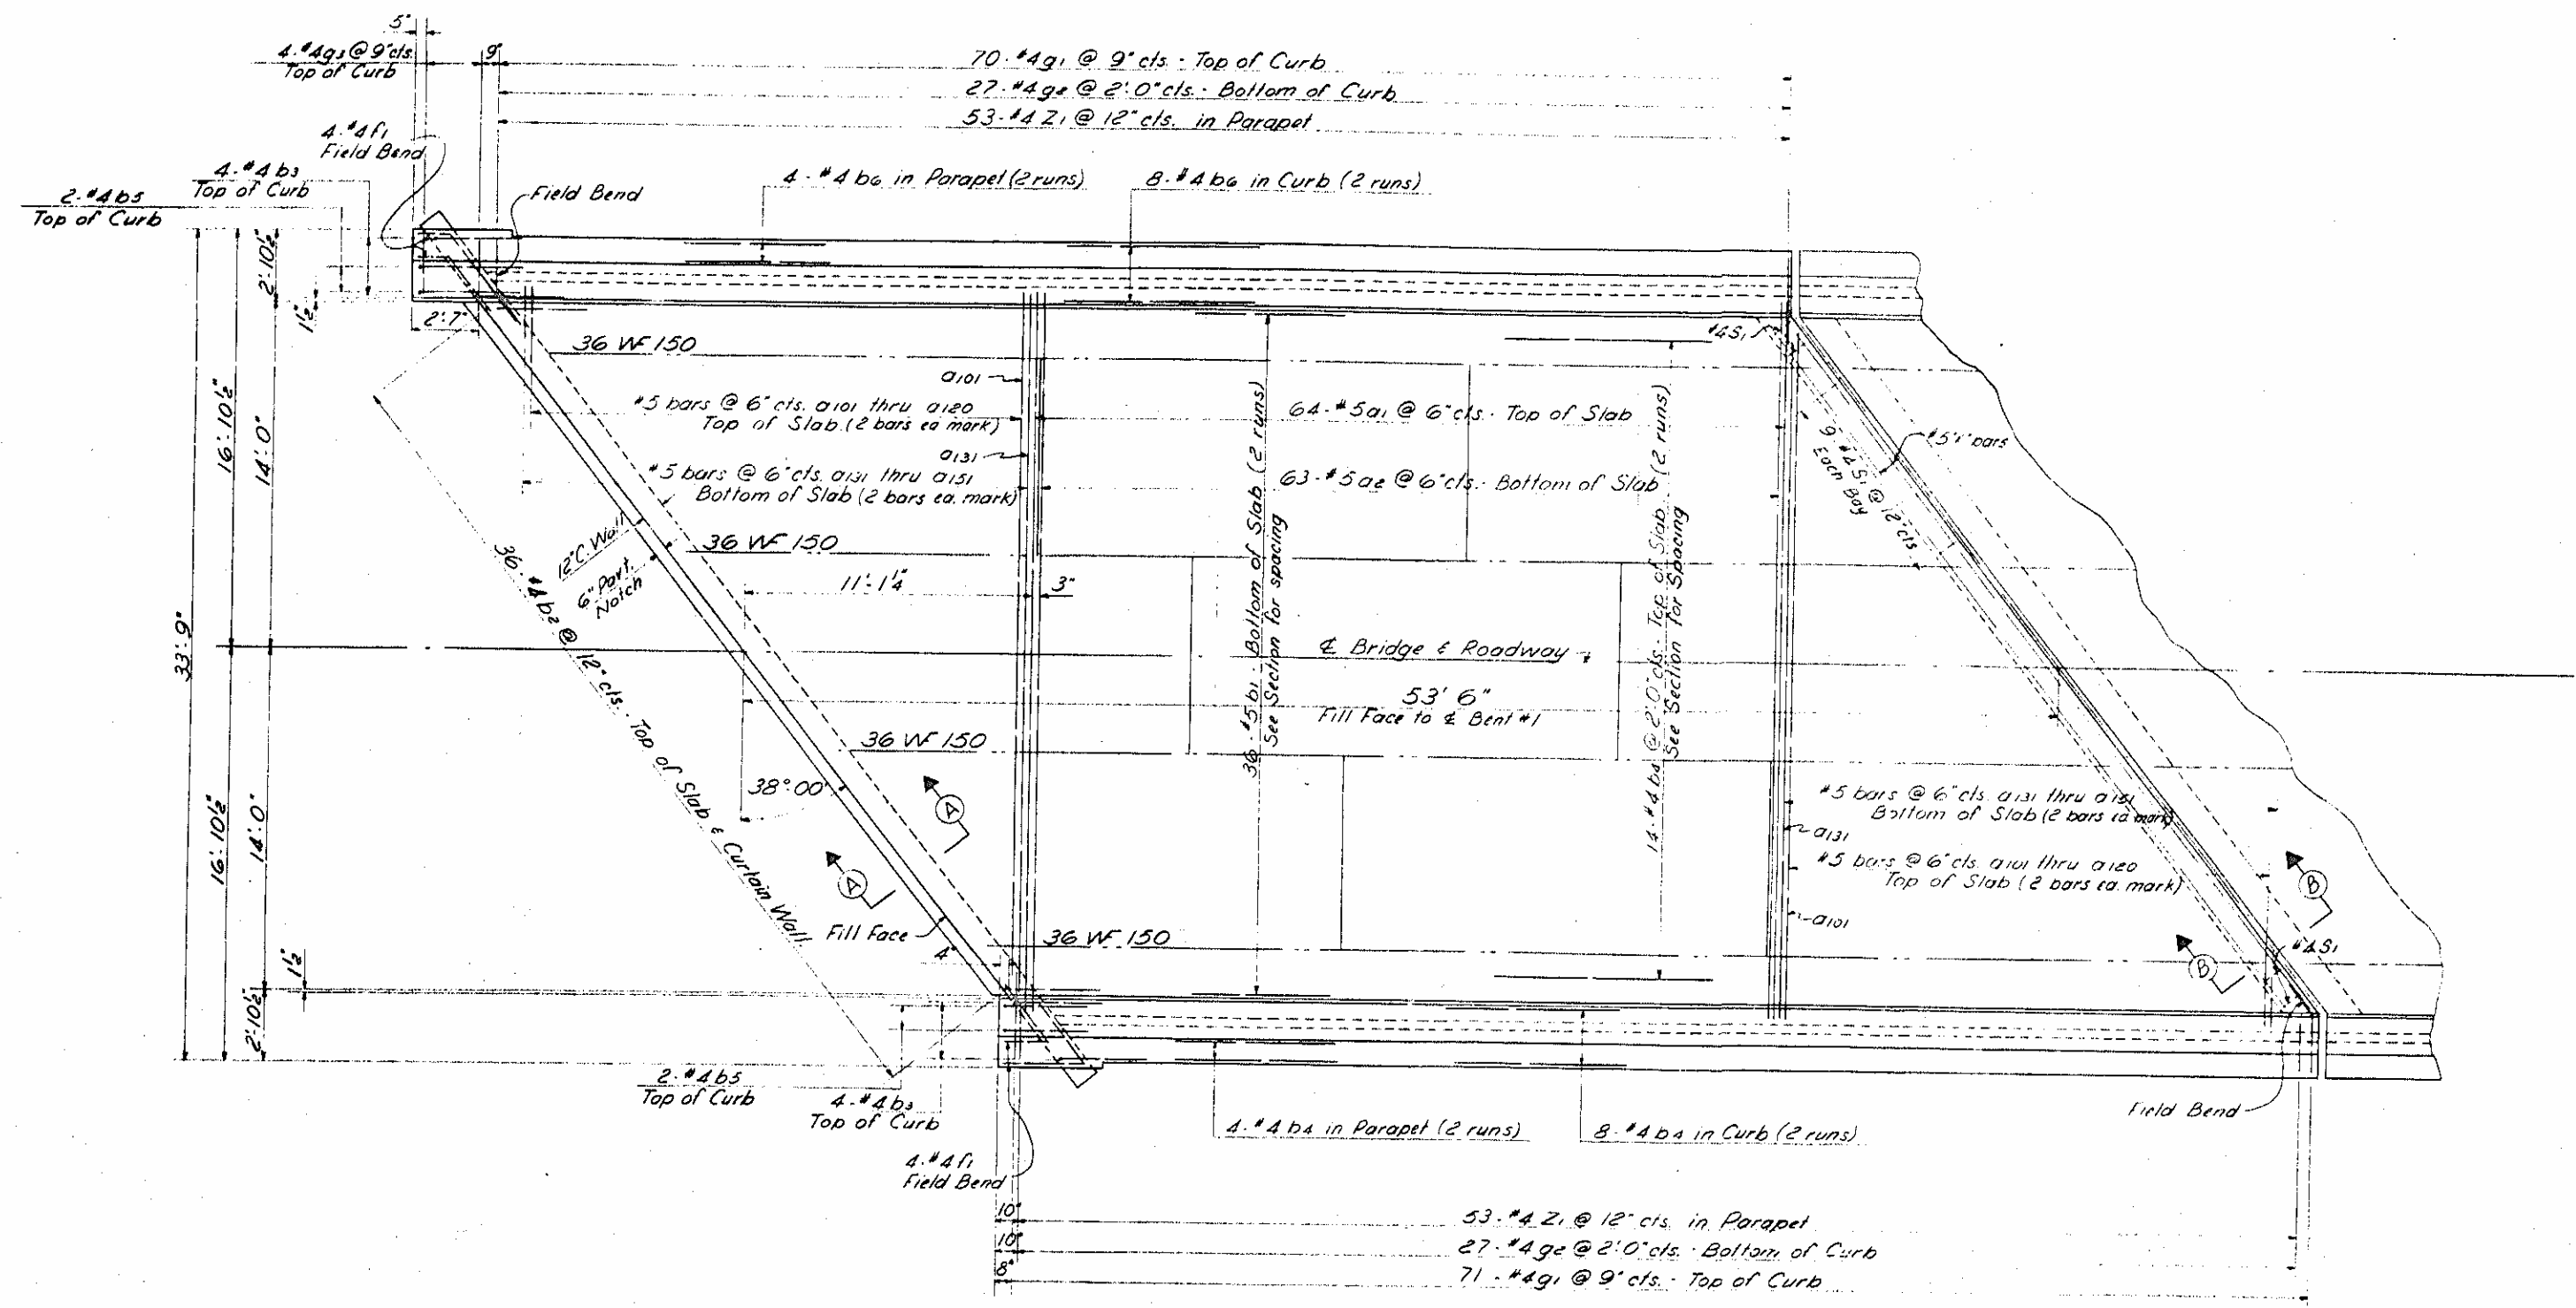 5"
4-#4g3 @ 9"cts.
Top of Curb
9"
70-#4g1 @ 9" cts. - Top of Curb
27-#4g2 @ 2'-0"cts. - Bottom of Curb
53-#4 Z1 @ 12" cts. in Parapet
4-#4f1
Field Bend
4-#4 b3
Top of Curb
2-#4b5
Top of Curb
Field Bend
4-#4 b6 in Parapet (2 runs)
8-#4 b6 in Curb (2 runs)
2'-10½"
1½"
2'-7"
36 WF 150
#4S1
a101
#5 bars @ 6" cts. a101 thru a120
Top of Slab (2 bars ea mark)
64-#5a1 @ 6"cts. - Top of Slab
a131
#5 bars @ 6"cts. a131 thru a151
Bottom of Slab (2 bars ea. mark)
63-#5a2 @ 6"cts. - Bottom of Slab
#5"i" bars
9-#4 S1 @ 12"cts
Each Bay
16'-10½"
14'-0"
33'-9"
12"C. Wall
6" Part.
Notch
36 WF 150
11'-1¼"
3"
36-#4 b2 @ 12" cts. - Top of Slab & Curtain Wall
36-#5 b1 - Bottom of Slab (2 runs)
See Section for spacing
14-#4 b4 @ 2'-0"cts. - Top of Slab (2 runs)
See Section for Spacing
℄ Bridge & Roadway
53' 6"
Fill Face to ℄ Bent #1
36 WF 150
38°-00'
A
A
16'-10½"
14'-0"
#5 bars @ 6"cts. a131 thru a151
Bottom of Slab (2 bars ea mark)
a131
#5 bars @ 6"cts. a101 thru a120
Top of Slab (2 bars ea. mark)
a101
B
B
Fill Face
4"
36 WF 150
#4S1
1½"
2'-10½"
2-#4b5
Top of Curb
4-#4b3
Top of Curb
4-#4f1
Field Bend
4-#4 b4 in Parapet (2 runs)
8-#4 b4 in Curb (2 runs)
Field Bend
10"
53-#4 Z1 @ 12" cts. in Parapet
10"
27-#4g2 @ 2'-0"cts. - Bottom of Curb
8"
71-#4g1 @ 9" cts. - Top of Curb